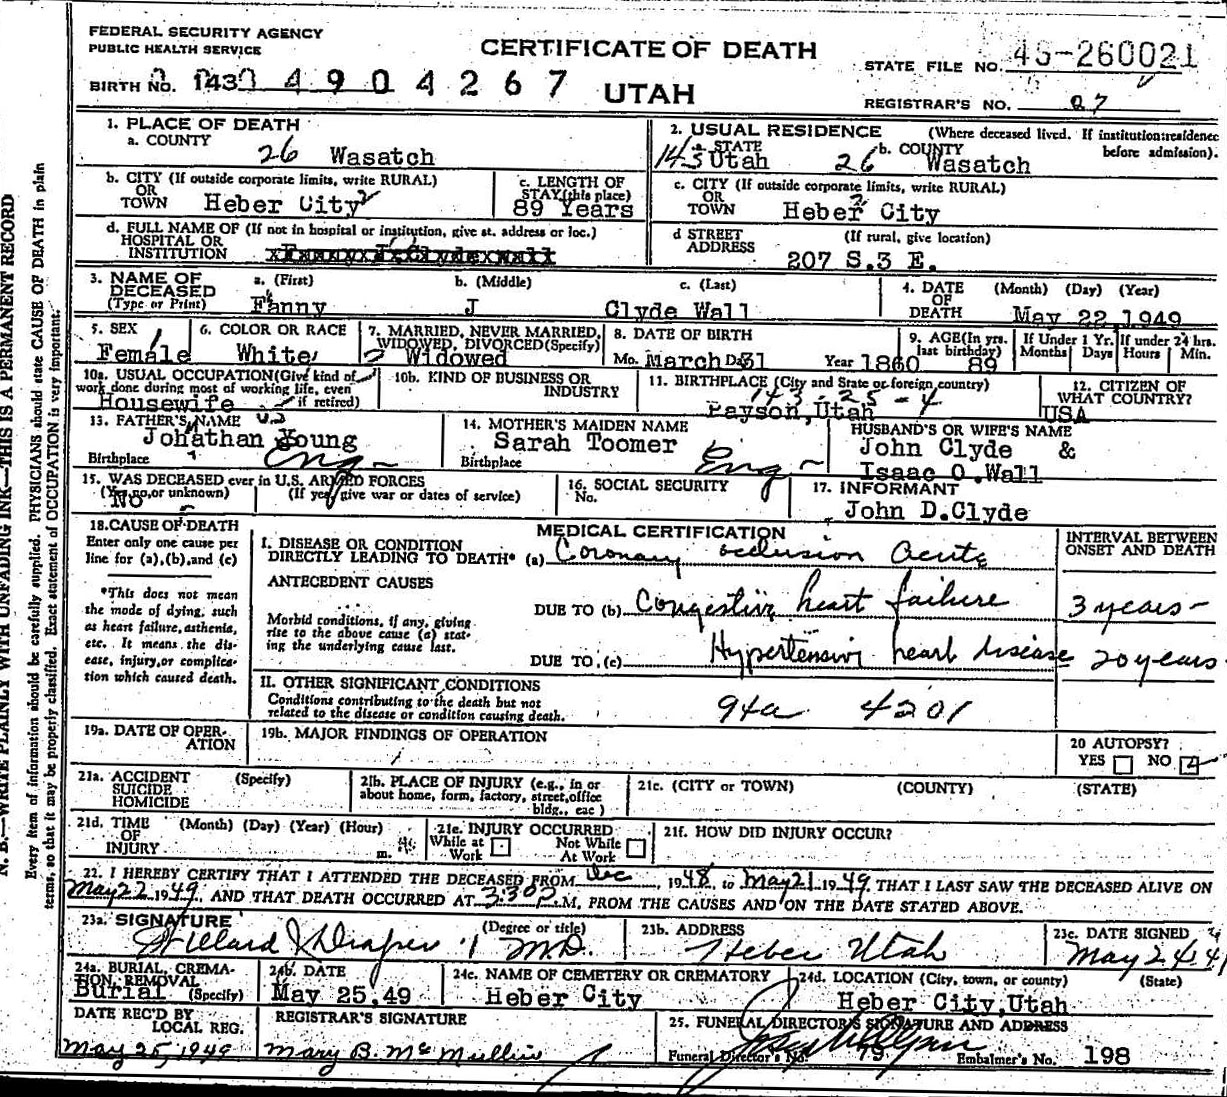 FEDERAL SECURITY AGENCY
PUBLIC HEALTH SERVICE
CERTIFICATE OF DEATH
UTAH
STATE FILE NO. 49-260021
BIRTH NO. 143 4904267
REGISTRAR'S NO. 27
1. PLACE OF DEATH
a. COUNTY
26 Wasatch
2. USUAL RESIDENCE (Where deceased lived. If institution:residence before admission).
a. STATE
143 Utah
b. COUNTY
26 Wasatch
b. CITY (If outside corporate limits, write RURAL)
OR
TOWN Heber City
c. LENGTH OF
STAY(this place)
89 Years
c. CITY (If outside corporate limits, write RURAL)
OR
TOWN Heber City
d. FULL NAME OF (If not in hospital or institution, give st. address or loc.)
HOSPITAL OR
INSTITUTION
d STREET
ADDRESS
(If rural, give location)
207 S.3 E.
3. NAME OF
DECEASED
(Type or Print)
a. (First)
Fanny
b. (Middle)
J
c. (Last)
Clyde Wall
4. DATE
OF
DEATH
(Month) (Day) (Year)
May 22,1949
5. SEX
Female
6. COLOR OR RACE
White
7. MARRIED, NEVER MARRIED,
WIDOWED, DIVORCED(Specify)
2 Widowed
8. DATE OF BIRTH
Mo. March Da 31 Year 1860
9. AGE(In yrs.
last birthday)
89
If Under 1 Yr.
Months Days
If under 24 hrs.
Hours Min.
10a. USUAL OCCUPATION(Give kind of
work done during most of working life, even
if retired)
Housewife
10b. KIND OF BUSINESS OR
INDUSTRY
11. BIRTHPLACE (City and State or foreign country)
143-25-4
Payson,Utah
12. CITIZEN OF
WHAT COUNTRY?
USA
13. FATHER'S NAME
Johathan Young
Birthplace Eng-
14. MOTHER'S MAIDEN NAME
Sarah Toomer
Birthplace Eng-
HUSBAND'S OR WIFE'S NAME
John Clyde &
Isaac O.Wall
15. WAS DECEASED ever in U.S. ARMED FORCES
(Yes,no,or unknown) (If yes, give war or dates of service)
No
16. SOCIAL SECURITY
No.
17. INFORMANT
John D.Clyde
18.CAUSE OF DEATH
Enter only one cause per
line for (a),(b),and (c)
*This does not mean
the mode of dying, such
as heart failure,asthenia,
etc. It means the dis-
ease, injury,or complica-
tion which caused death.
MEDICAL CERTIFICATION
INTERVAL BETWEEN
ONSET AND DEATH
I. DISEASE OR CONDITION
DIRECTLY LEADING TO DEATH* (a) Coronary occlusion Acute
ANTECEDENT CAUSES
Morbid conditions, if any, giving
rise to the above cause (a) stat-
ing the underlying cause last.
DUE TO (b) Congestive heart failure 3 years-
DUE TO (c) Hypertensive heart disease 20 years-
II. OTHER SIGNIFICANT CONDITIONS
Conditions contributing to the death but not
related to the disease or condition causing death.
94a 4201
19a. DATE OF OPER-
ATION
19b. MAJOR FINDINGS OF OPERATION
20 AUTOPSY?
YES NO
21a. ACCIDENT (Specify)
SUICIDE
HOMICIDE
21b. PLACE OF INJURY (e.g., in or
about home, form, factory, street,office
bldg., eac )
21c. (CITY or TOWN) (COUNTY) (STATE)
21d. TIME (Month) (Day) (Year) (Hour)
OF
INJURY m.
21e. INJURY OCCURRED
While at Not While
Work At Work
21f. HOW DID INJURY OCCUR?
22. I HEREBY CERTIFY THAT I ATTENDED THE DECEASED FROM Dec, 1948, to May 21 1949 THAT I LAST SAW THE DECEASED ALIVE ON
May 22 1949, AND THAT DEATH OCCURRED AT 3:30 P.M, FROM THE CAUSES AND ON THE DATE STATED ABOVE.
23a. SIGNATURE (Degree or title)
Willard Draper M.D.
23b. ADDRESS
Heber Utah
23c. DATE SIGNED
May 24 49
24a. BURIAL, CREMA-
TION, REMOVAL
Burial (Specify)
24b. DATE
May 25,49
24c. NAME OF CEMETERY OR CREMATORY
Heber City
24d. LOCATION (City, town, or county) (State)
Heber City,Utah
DATE REC'D BY
LOCAL REG.
May 25,1949
REGISTRAR'S SIGNATURE
Mary B. McMullin
25. FUNERAL DIRECTOR'S SIGNATURE AND ADDRESS
Funeral Director's No. 79 Embalmer's No. 198
N. B.—WRITE PLAINLY WITH UNFADING INK—THIS IS A PERMANENT RECORD
Every item of information should be carefully supplied. PHYSICIANS should state CAUSE OF DEATH in plain
terms, so that it may be properly classified. Exact statement of OCCUPATION is very important.